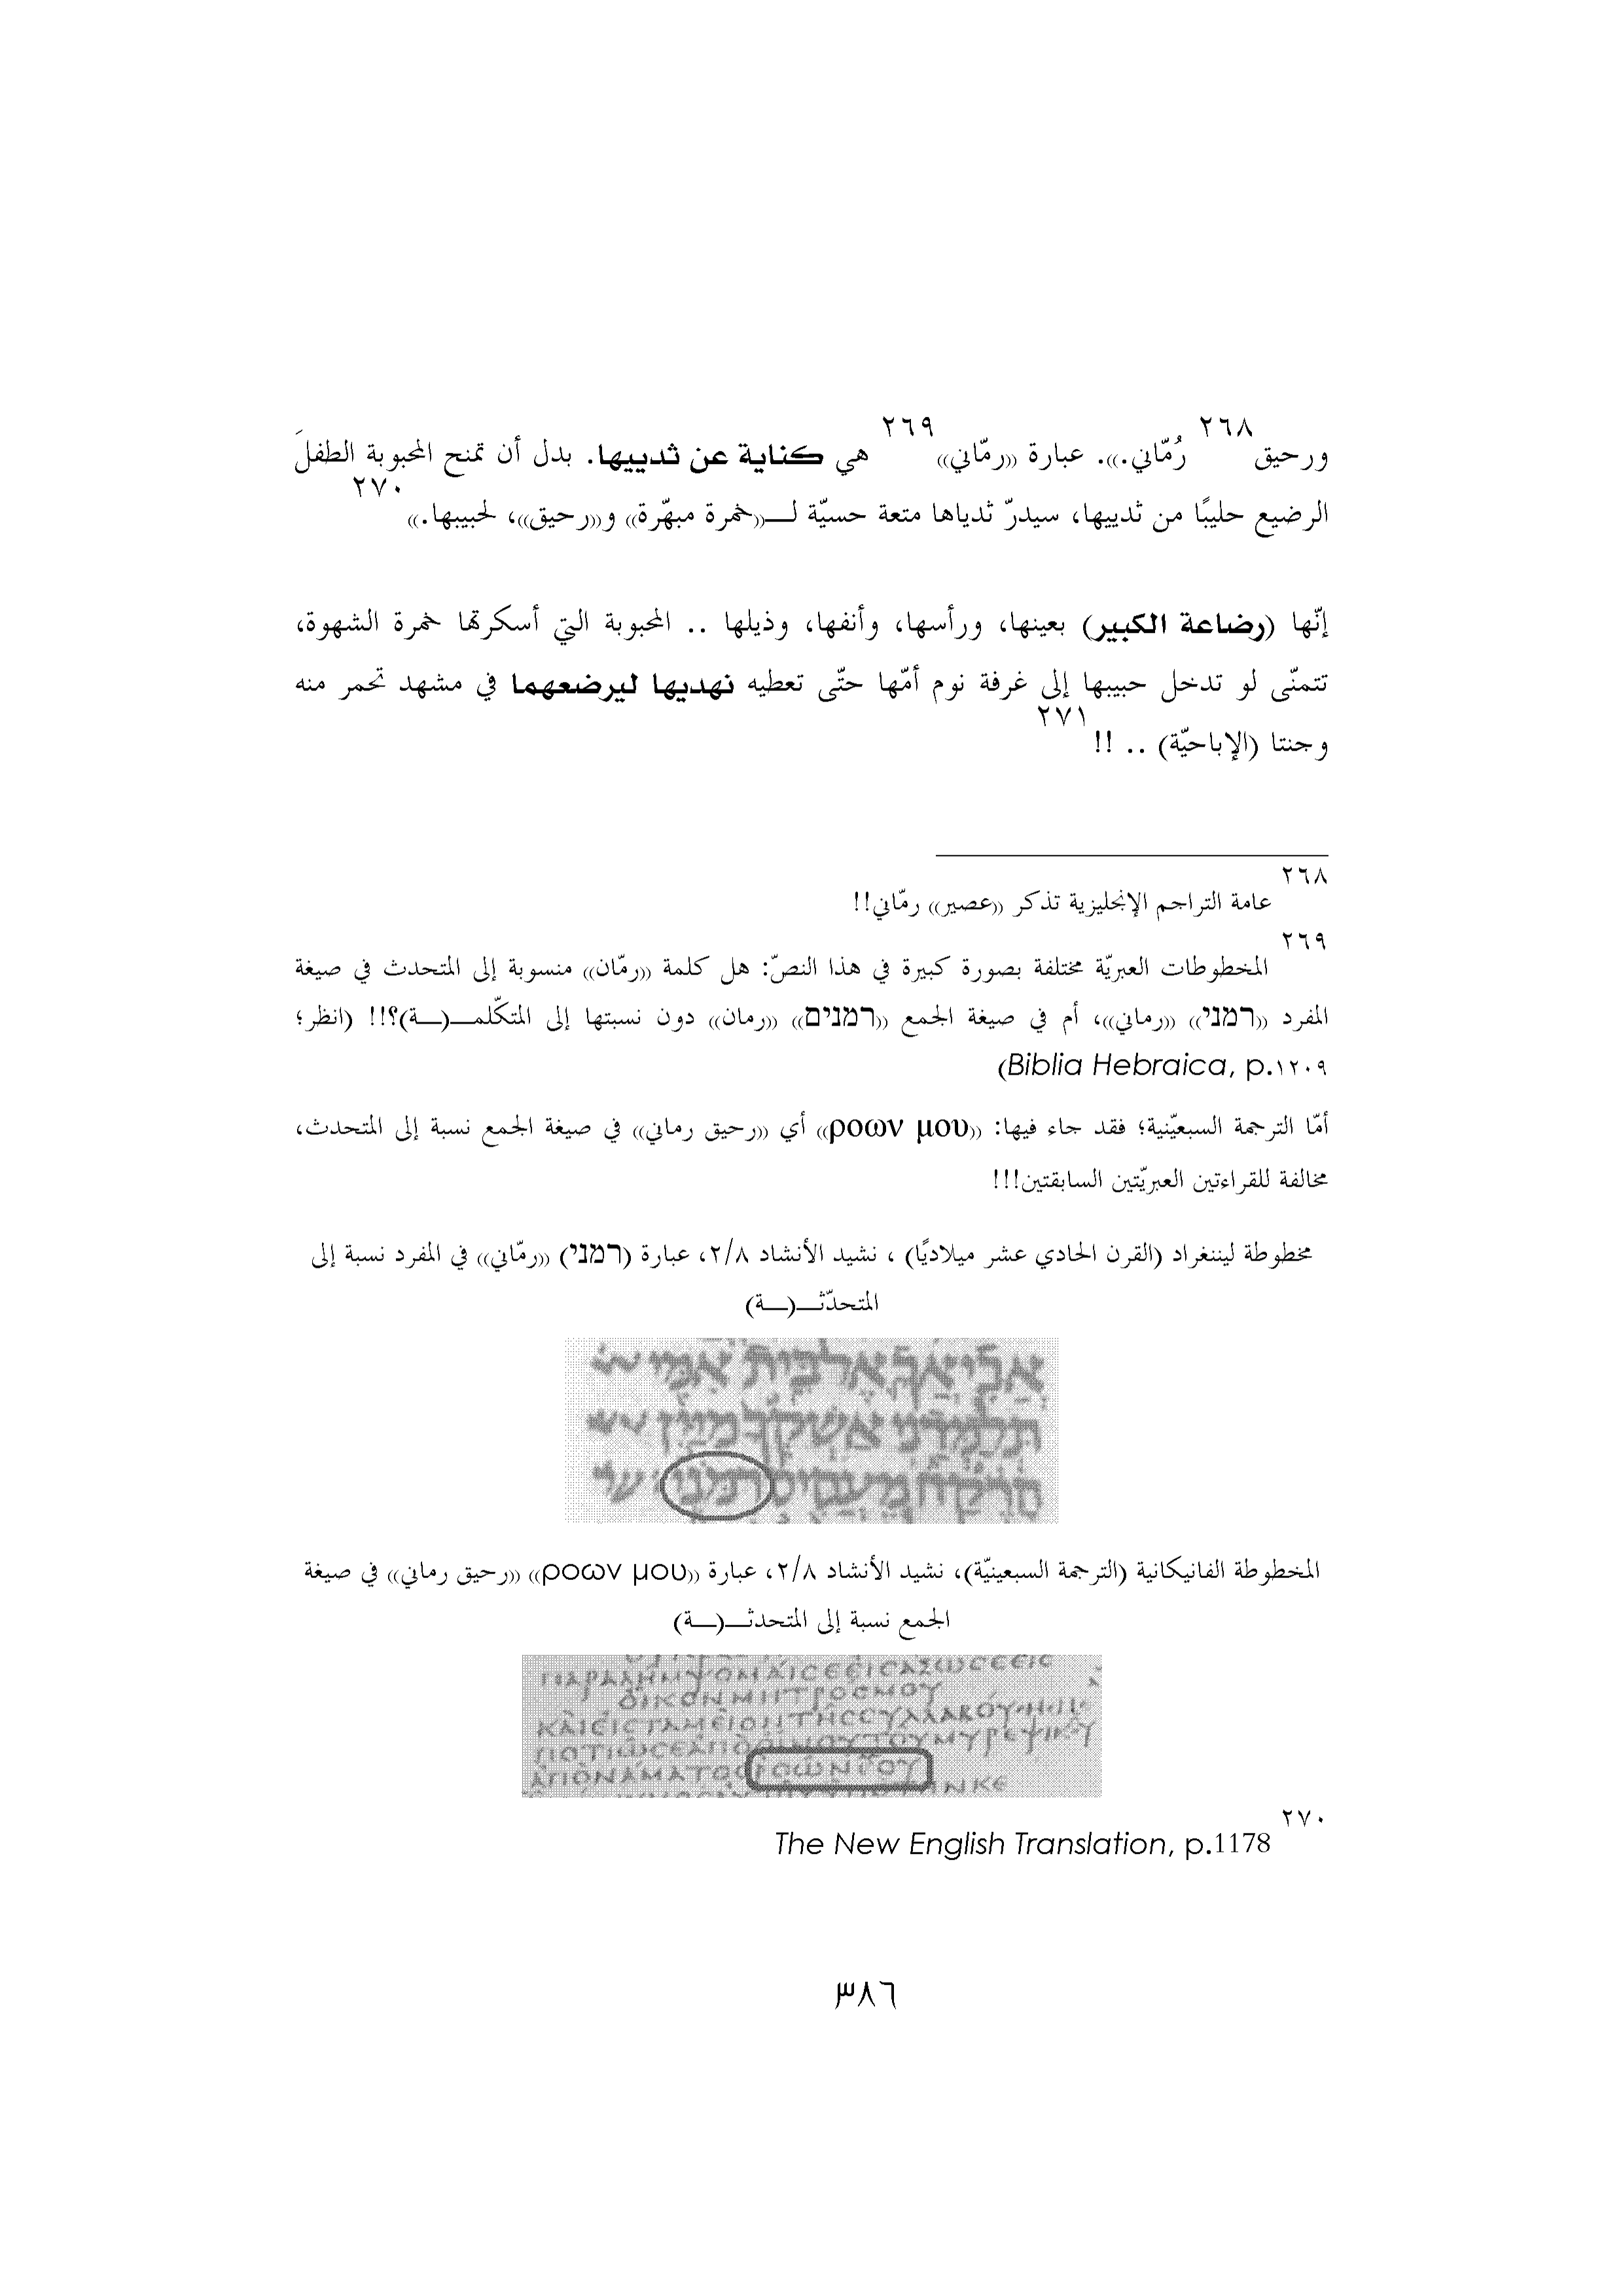 ورحيق٢٦٨ رُمّاني.)). عبارة ((رمّاني))٢٦٩ هي كناية عن ثدييها. بدل أن تمنح المحبوبة الطفلَ
الرضيع حليبًا من ثدييها، سيدرّ ثدياها متعة حسيّة لــ((خمرة مبهّرة)) و((رحيق))، لحبيبها.))٢٧٠
إنّها (رضاعة الكبير) بعينها، ورأسها، وأنفها، وذيلها .. المحبوبة التي أسكرتها خمرة الشهوة،
تتمنّى لو تدخل حبيبها إلى غرفة نوم أمّها حتّى تعطيه نهديها ليرضعهما في مشهد تحمر منه
وجنتا (الإباحيّة) .. !!٢٧١
٢٦٨ عامة التراجم الإنجليزية تذكر ((عصير)) رمّاني!!
٢٦٩ المخطوطات العبريّة مختلفة بصورة كبيرة في هذا النصّ: هل كلمة ((رمّان)) منسوبة إلى المتحدث في صيغة
المفرد ((רמני)) ((رماني))، أم في صيغة الجمع ((רמנים)) ((رمان)) دون نسبتها إلى المتكّلمــ(ــة)؟!! (انظر؛
Biblia Hebraica, p.١٢٠٩)
أمّا الترجمة السبعيّنية؛ فقد جاء فيها: ((ροων μου)) أي ((رحيق رماني)) في صيغة الجمع نسبة إلى المتحدث،
مخالفة للقراءتين العبريّتين السابقتين!!!
مخطوطة ليننغراد (القرن الحادي عشر ميلاديًا) ، نشيد الأنشاد ٢/٨، عبارة (רמני) ((رمّاني)) في المفرد نسبة إلى
المتحدّثــ(ــة)
المخطوطة الفانيكانية (الترجمة السبعينيّة)، نشيد الأنشاد ٢/٨، عبارة ((ροων μου)) ((رحيق رماني)) في صيغة
الجمع نسبة إلى المتحدثــ(ــة)
٢٧٠ The New English Translation, p.1178
٣٨٦